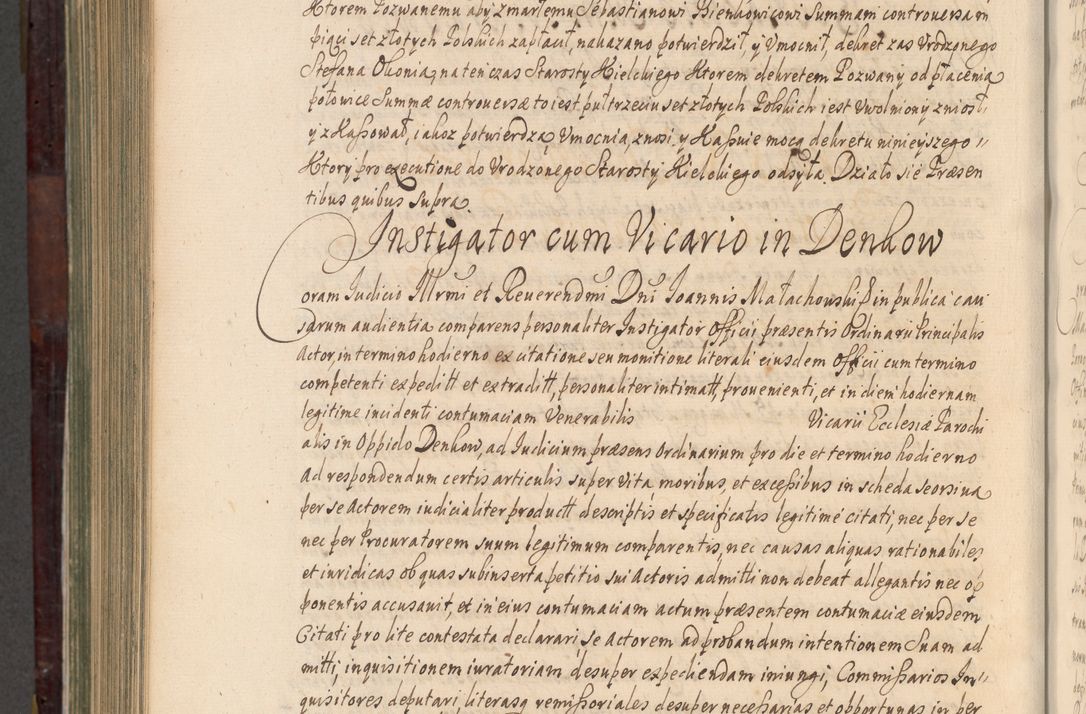 Ktorem Pozwanemu aby zmartemu Sebastianowi Bienkowicowi Summam controuersam
pięci set złotych Polskich zapłacił, nakazano potwierdził, y Vmocnił, dekret zas Vrodzonego
Stefana Okonia na tenczas Starosty Kielckiego Ktorem dekretem Pozwany od płacenia
połowice Summæ controuersæ to iest puł trzeciu set złotych Polskich iest Vwolniony zniosł
y z Kassował, iakoz potwierdza Vmocnia, znosi, y Kassuie mocą dekretu ninieyszego
Ktory pro executione do Vrodzonego Starosty Kielckiego odsyła. Działo sie Præsen
tibus quibus supra
Instigator cum Vicario in Denkow
Coram Iudicio Illrmi et Reuerendmi Dni Ioannis Małachowski in publica cau
sarum audientia comparens personaliter Instigator Officii præsentis Ordinarii Principalis
Actor, in termino hodierno ex citatione seu monitione literali eiusdem Officii cum termino
competenti expeditt et extraditt, personaliter intimatt, prouenienti, et in diem hodiernam
legitime incidenti contumaciam Venerabilis Vicarii Ecclesiæ Parochi
alis in Oppido Denkow, ad Iudicium præsens Ordinarium pro die et termino hodierno
ad respondendum certis articulis super vita, moribus, et excessibus in scheda seorsiua
per se Actorem iudicialiter productt descriptis et specificatis legitime citati, nec per se
nec per Procuratorem suum legitimum comparentis, nec causas aliquas rationabiles
et iuridicas ob quas subinserta petitio sui Actoris admitti non debeat allegantis nec op
ponentis accusauit, et in eius contumaciam actum præsentem contumaciæ eiusdem
Citati pro lite contestata declarari se Actorem ad probandum intentionem Suam ad
mitti, inquisitionem iuratoriam desuper expediendam iniungi, Commissarios In
quisitores deputari, literasq remissoriales desuper necessarias et opportunas in per